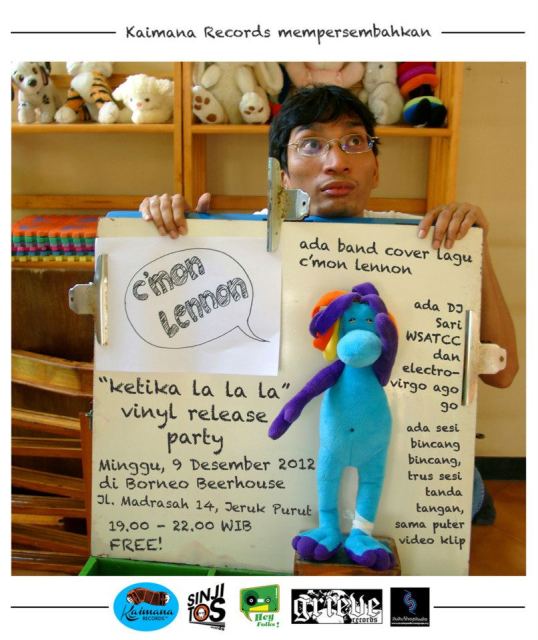 Kaimana Records mempersembahkan
c'mon
Lennon
ada band cover lagu
c'mon lennon
ada DJ
Sari
WSATCC
dan
electro-
virgo ago
go
ada sesi
bincang
bincang,
trus sesi
tanda
tangan,
sama puter
video klip
"ketika la la la"
vinyl release
party
Minggu, 9 Desember 2012
di Borneo Beerhouse
Jl. Madrasah 14, Jeruk Purut
19.00 - 22.00 WIB
FREE!
Kaimana
RECORDS
SINJI
TOS
Hey
Folks!
grieve
records